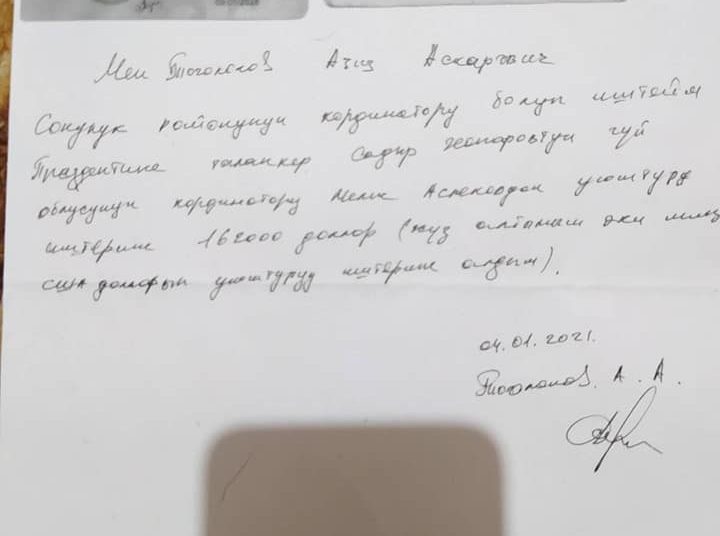 Мен Тоголоков Азиз Аскарович
Сокулук районунун кординатору болуп иштейм
Праздентине талапкер Садыр Жапаровтун чуй
облусунун кординатору Мелис Аспековдан уюштуруу
иштерине 162000 доллор (жуз алтымыш эки миң
сша долларын уюштуруу иштерине алдым).
04.01.2021.
Тоголоков. А. А.